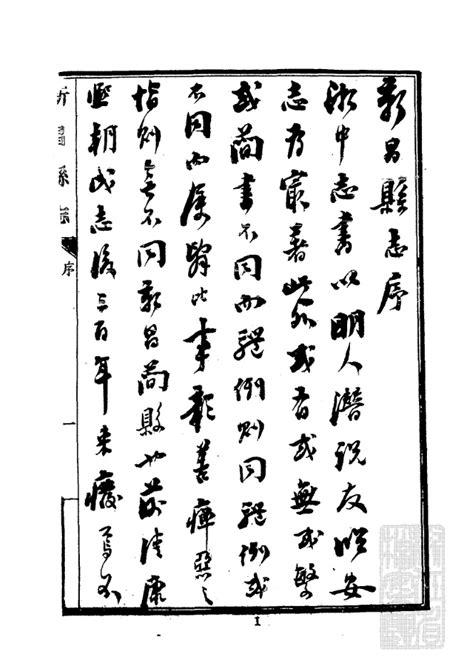 新昌縣志序
浙中志書以明人潛說友臨安
志為最著此外或有或無或繁
或簡書不同而體例則同體例或
不同而屬辭比事彰善癉惡之
指則無不同新昌簡縣也前清康
熙朝成志後三百年來廢焉不
新昌縣志
序
一
1